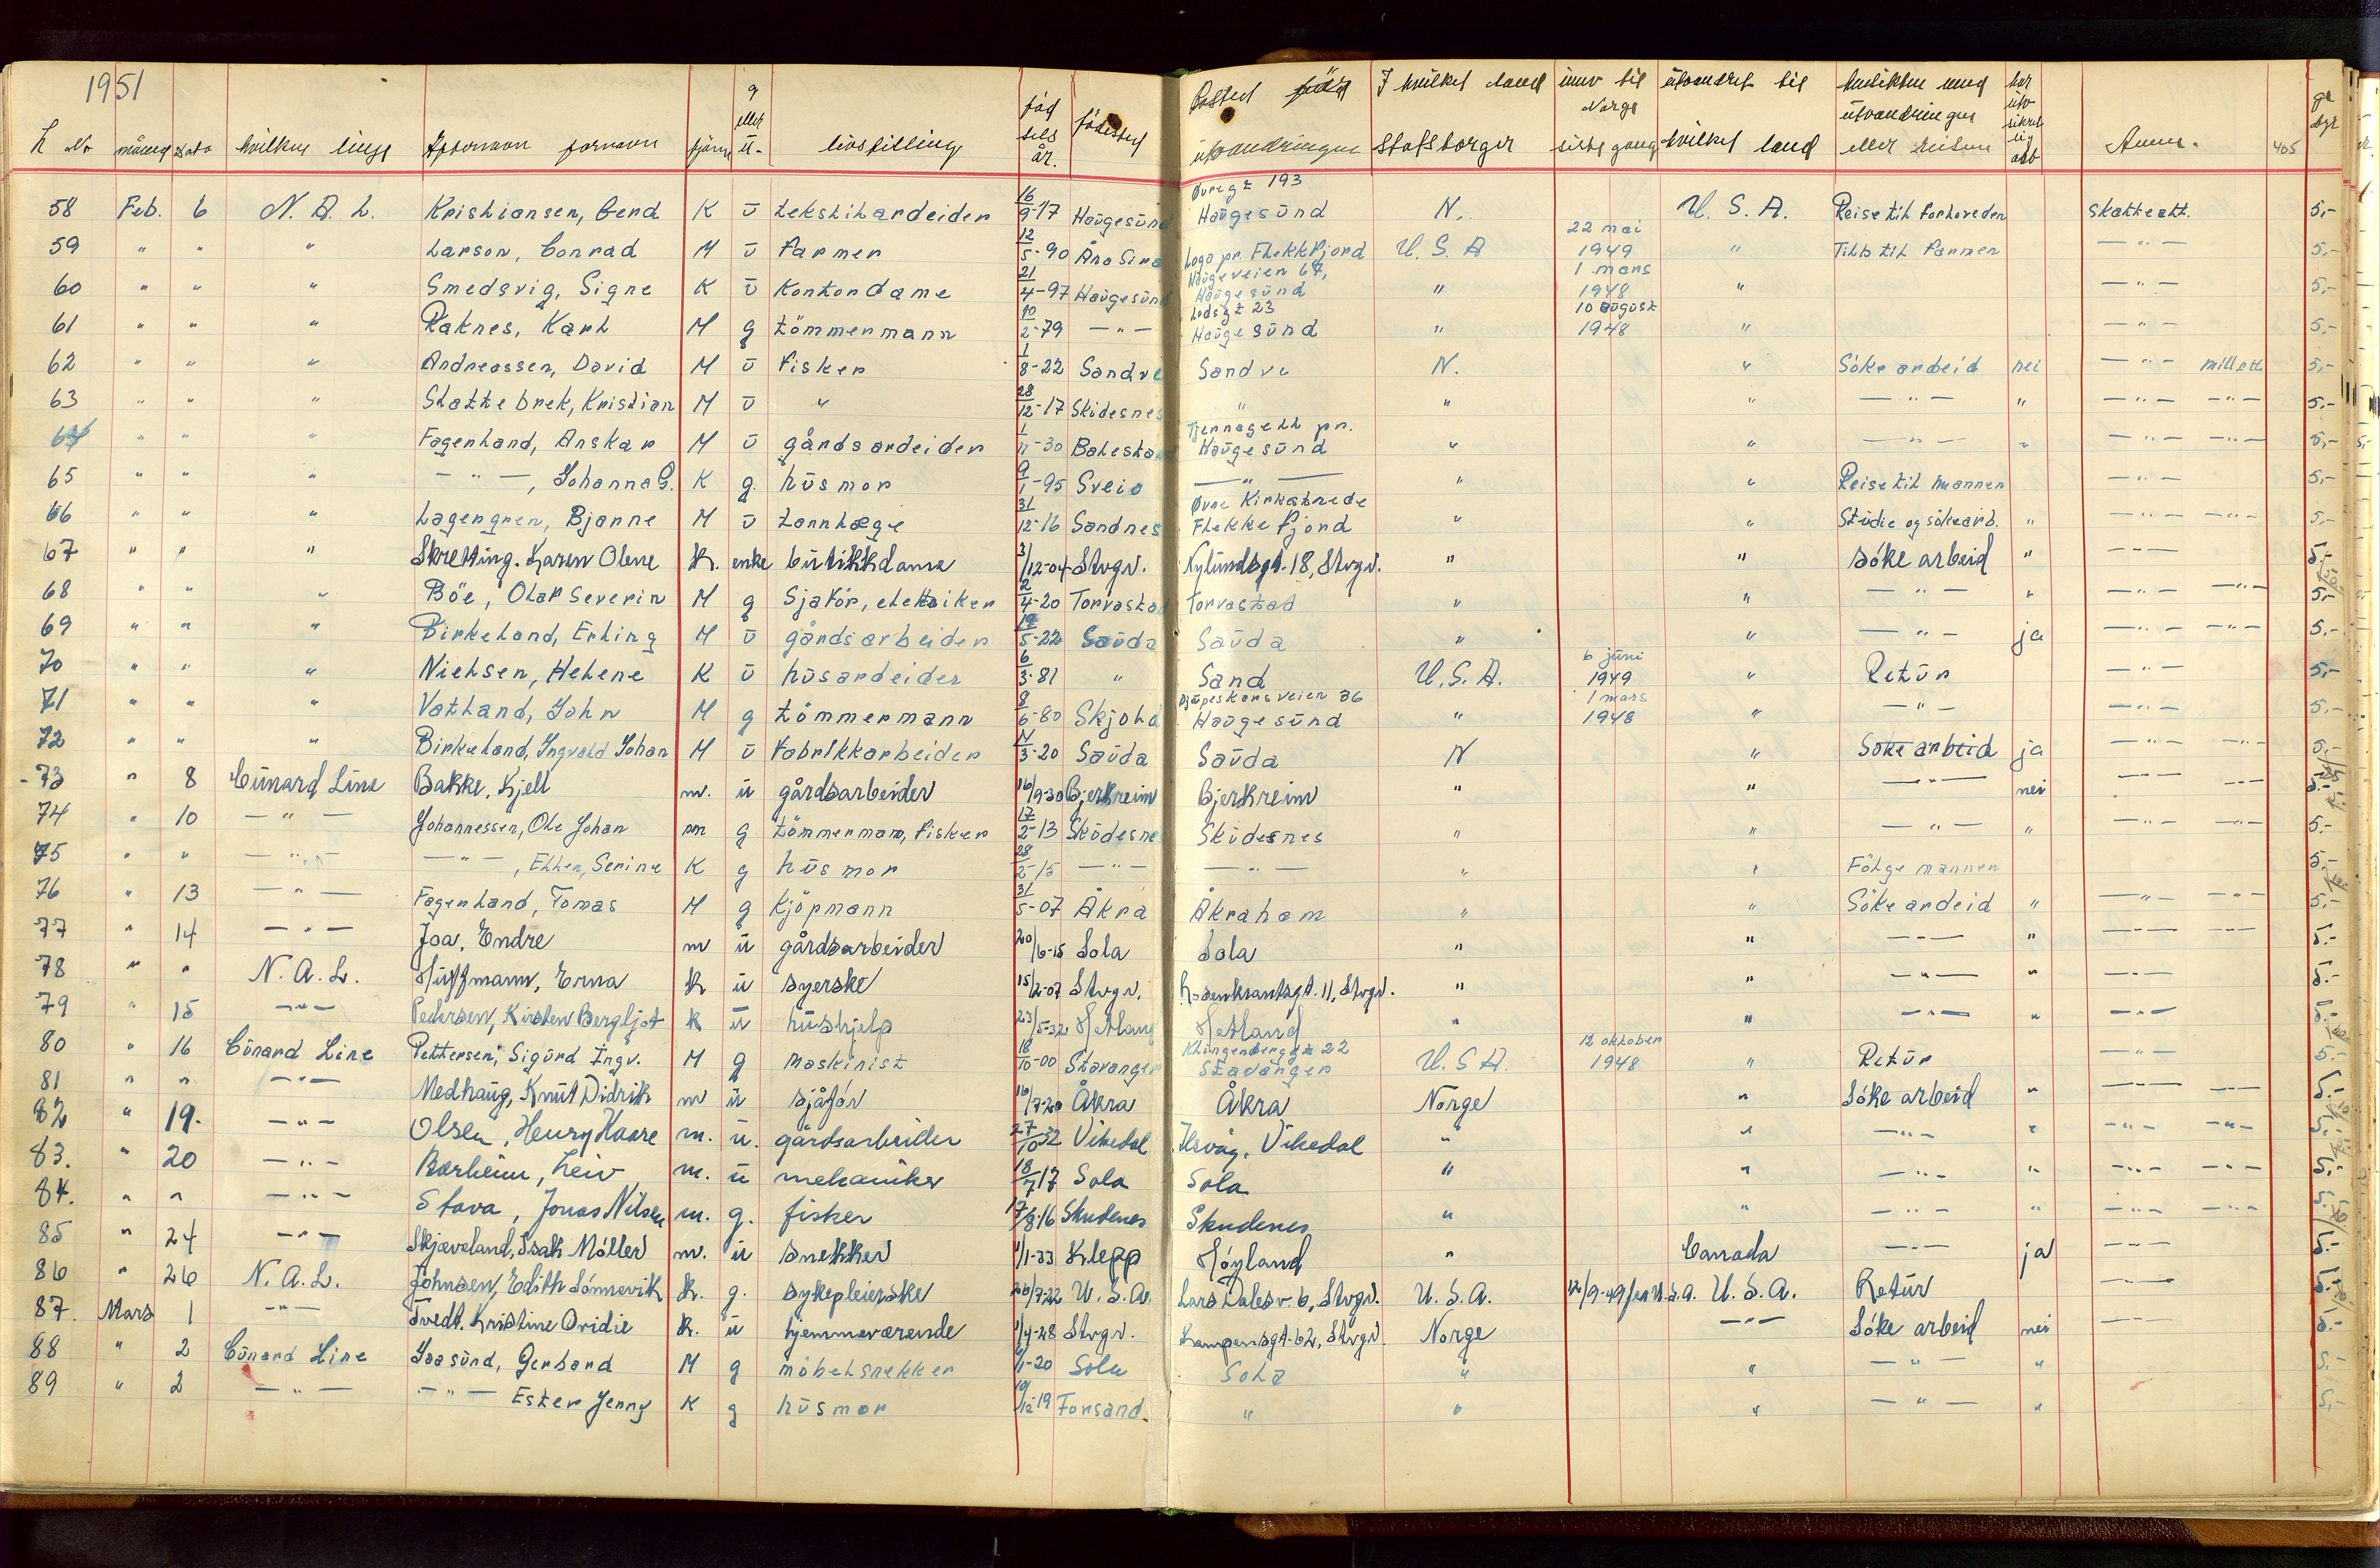 1951
L Nr måned Dato hvilken linje Efternavn fornavn kjönn g eller u- livsstilling fødselsår. födested Bosted før utvandringen I hvilket land statsborger innv til Norge siste gang utvandret til hvilket land hensikten med utvandringen eller reisen har utv sikret sig arb Anm. 405
58 Feb. 6 N. A. L. Kristiansen, Gerd K ū tekstilarbeider 16/9-17 Haugesund Øvregt 193 Haugesund N. U. S. A. Reise til forloveden Skatteatt. 5,-
59 " " " Larson, Conrad M ū farmer 12/5-90 Åna Sira Loga pr. Flekkefjord U. S. A 22 mai 1949 " Tilb til farmen — " — 5,-
60 " " " Smedsvig, Signe K ū Kontordame 21/4-97 Haugesund Haugeveien 67, Haugesund " 1 mars 1948 " — " — 5,-
61 " " " Raknes, Karl M g tömmermann 10/2-79 — " — Lodsgt 23 Haugesund " 10 august 1948 " — " — 5,-
62 " " " Andreassen, David M ū fisker 1/8-22 Sandve Sandve N. " Söke arbeid nei — " — mil att 5,-
63 " " " Stattebrek, Kristian M ū " 28/12-17 Skudesnes " " " — " — " — " — — " — 5,-
64 " " " Fagerland, Anskar M ū gårdsarbeider 1/11-30 Bokestad Tjernagell pr. Haugesund " " — " — " — " — — " — 5,-
65 " " " — " —, Johanna G. K g. husmor 9/1-95 Sveio — " — " " Reise til mannen — " — 5,-
66 " " " Lagergren, Bjarne M ū tannlæge 31/12-16 Sandnes Øvre Kirkestrede Flekkefjord " " Studie og sökearb. " — " — — " — 5,-
67 " " " Skretting. Karen Olene K. enke butikkdame 3/12-04 Stvgr. Nylundsgt. 18, Stvgr. " " söke arbeid " — " — 5.-
68 " " " Böe, Olaf Severin M g Sjaför, elektriker 2/4-20 Torvastad Torvastad " " — " — " — " — — " — 5,-
69 " " " Birkeland, Erling M ū gårdsarbeider 19/5-22 Sauda Sauda " " — " — ja — " — — " — 5,-
70 " " " Nielsen, Helene K ū husarbeider 6/3-81 " Sand U. S. A. 6 juni 1949 " Retur — " — 5,-
71 " " " Vatland, John M g tömmermann 8/6-80 Skjold Djupeskarsveien 36 Haugesund " 1 mars 1948 " — " — — " — 5,-
72 " " " Birkeland, Ingvald Johan M ū fabrikkarbeider 11/3-20 Sauda Sauda N " Söke arbeid ja — " — — " — 5,-
-73 " 8 Cunard Line Bakke, Kjell m. ū gårdsarbeider 16/9-30 Bjerkreim Bjerkreim " " — " — nei — " — — " — 5.-
74 " 10 — " — Johannessen, Ole Johan m g tömmermann, fisker 17/2-13 Skudesnes Skudesnes " " — " — " — " — — " — 5.-
75 " " — " — — " —, Ellen, Serine K g husmor 28/2-15 — " — — " — " " Fölge mannen 5.-
76 " 13 — " — Fagerland, Tomas M g Kjöpmann 31/5-07 Åkra Åkraham " " Söke arbeid " — " — — " — 5.-
77 " 14 — " — Joa, Endre m ū gårdsarbeider 20/6-15 Sola Sola " " — " — " — " — — " — 5.-
78 " " N. A. L. Huffmann, Erna K ū syerske 15/2-07 Stvgr. Rosenkrantzgt. 11, Stvgr. " " — " — " — " — 5.-
79 " 15 — " — Pedersen, Kirsten Bergljot K ū hushjelp 23/5-32 Hetland Hetland " " — " — " — " — 5.-
80 " 16 Cunard Line Pettersen, Sigurd Ingv. M g maskinist 18/10-00 Stavanger Klingenberggt 22 Stavanger U. S A. 12 oktober 1948 " Retur — " — 5.-
81 " " — " — Medhaug, Knut Didrik m ū sjåför 10/7-20 Åkra Åkra Norge " Söke arbeid " — " — — " — 5.-
82 " 19. — " — Olsen, Henry Haare m. ū. gårdsarbeider 27/10 32 Vikedal Ilsvåg, Vikedal " " — " — " — " — — " — 5.-
83. " 20 — " — Barheim, Leiv m. ū mekaniker 18/7 17 Sola Sola " " — " — " — " — — " — 5.-
84. " " — " — Stava, Jonas Nilsen m. g. fisker 17/8-16 Skudenes Skudenes " " — " — " — " — — " — 5.-
85 " 24 — " — Skjæveland, Isak Möller m. ū snekker 1/1-33 Klepp Höyland " Canada — " — ja — " — 5.-
86 " 26 N. A. L. Johnsen, Edith Sömmevik K. g. sykepleierske 26/7-22 U. S. A. Lars Dalesv. 6, Stvgr. U. S. A. 12/9-49 fra U.S.A. U. S. A. Retur — " — 5.-
87. Mars 1 — " — Tvedt. Kristine Ovidie K. ū hjemmeværende 1/4-28 Stvgr. Kampensgt. 62, Stvgr. Norge — " — Söke arbeid nei — " — 5.-
88 " 2 Cunard Line Jaasund, Gerhard M g möbelsnekker 6/1-20 Sola Sola " " — " — " 5.-
89 " 2 — " — — " — Ester Jenny K g husmor 10/12-19 Forsand. " " " — " — " 5,-